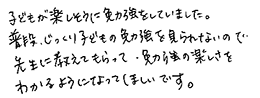 子どもが楽しそうに勉強をしていました。
普段、じっくり子どもの勉強を見られないので
先生に教えてもらって、勉強の楽しさを
わかるようになってほしいです。